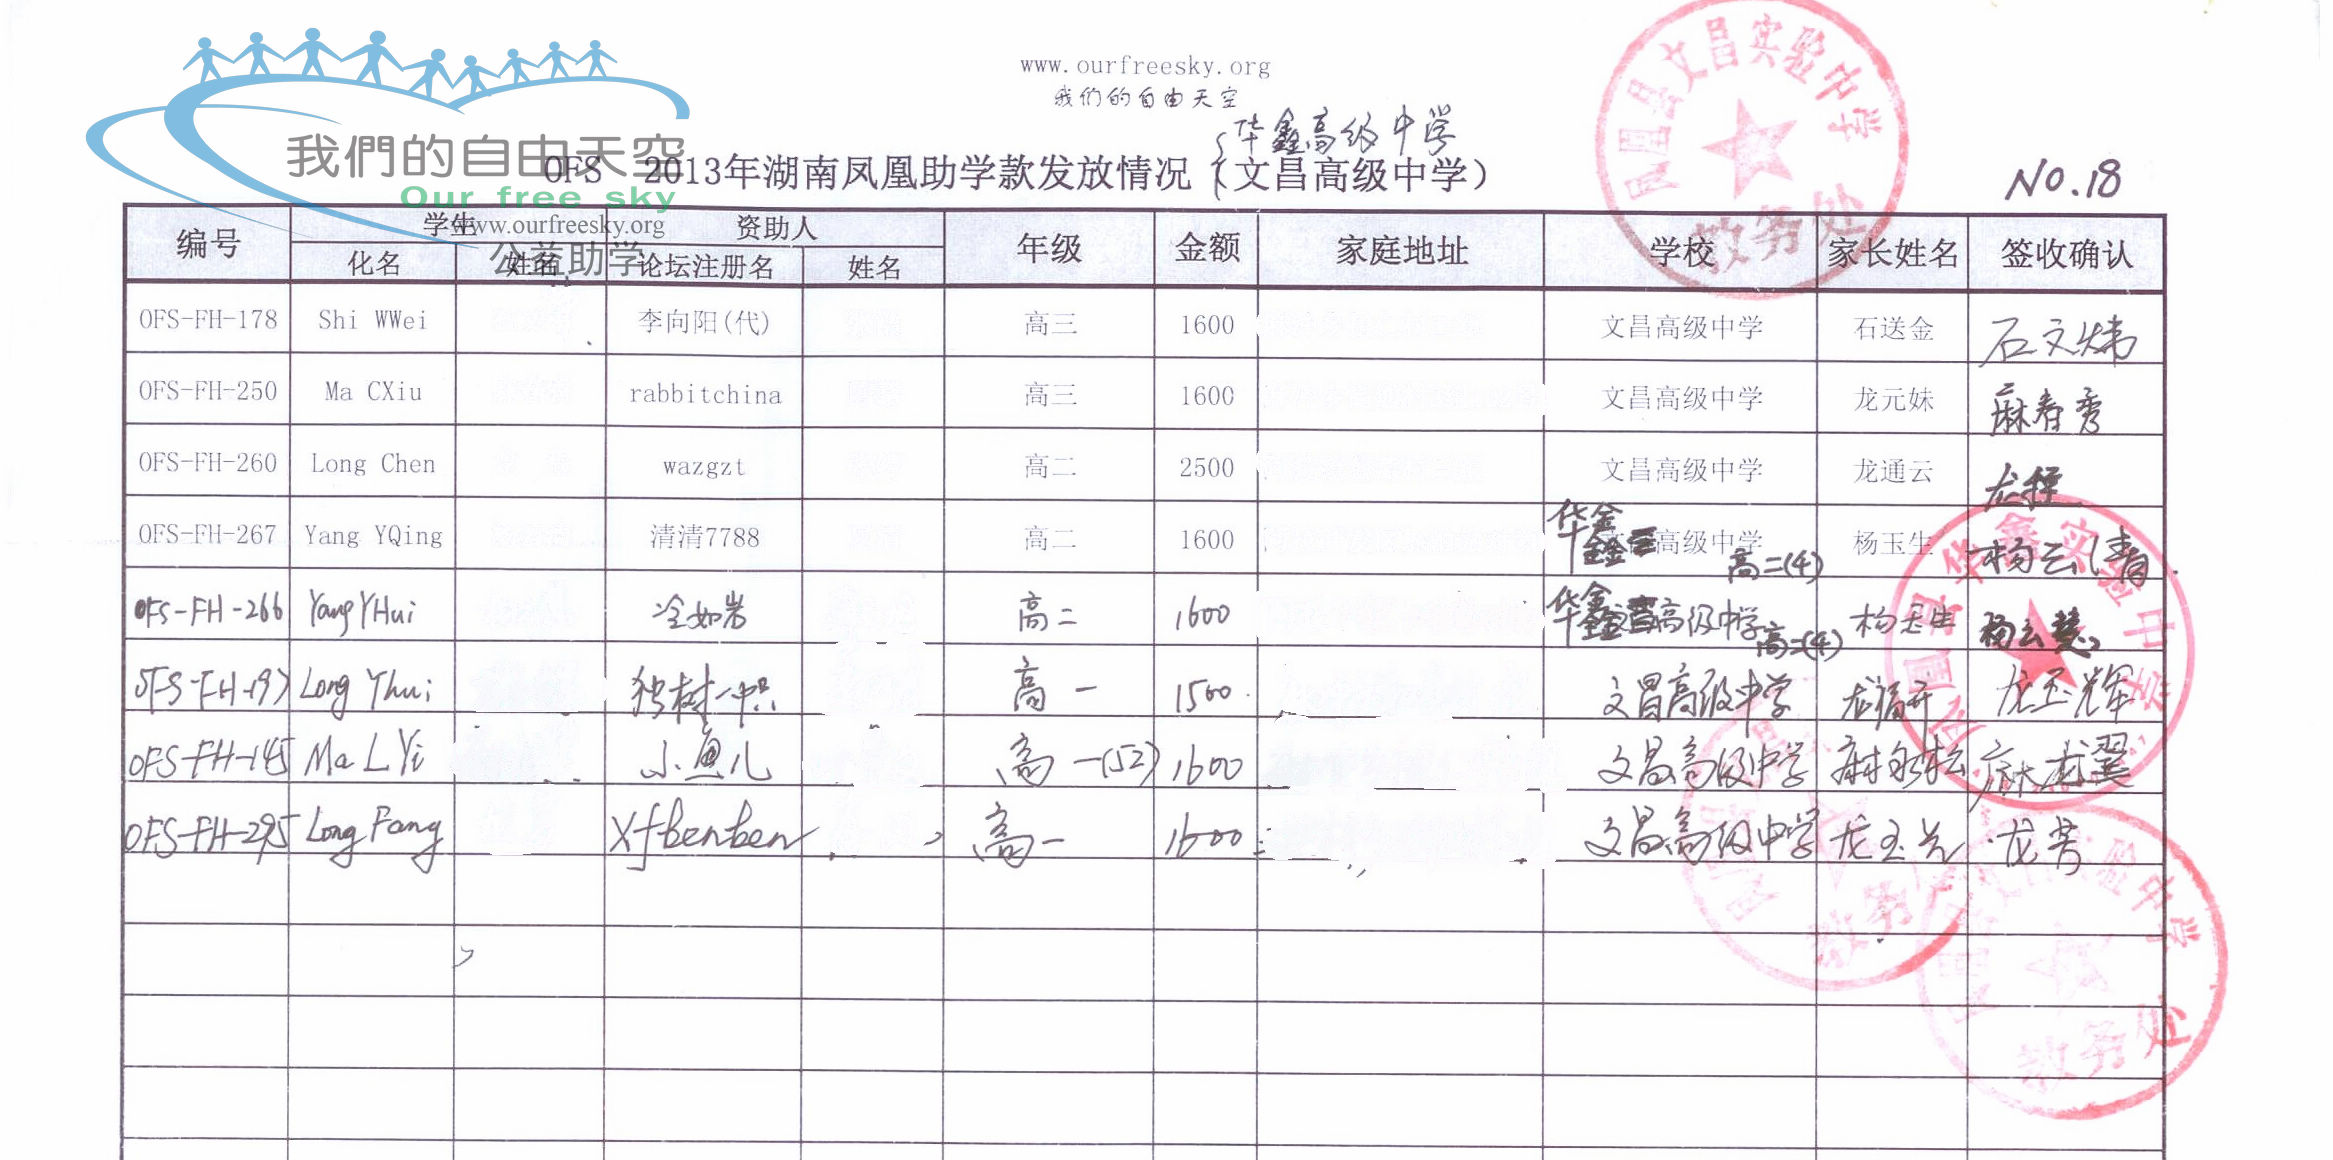 www.ourfreesky.org
我们的自由天空
华鑫高级中学
我們的自由天空
Our free sky
www.ourfreesky.org
公益助学
OFS 2013年湖南凤凰助学款发放情况（文昌高级中学）
NO.18
凤凰县文昌实验中学
教务处
编号 学生 资助人 年级 金额 家庭地址 学校 家长姓名 签收确认
化名 姓名 论坛注册名 姓名
OFS-FH-178 Shi WWei 李向阳(代) 高三 1600 文昌高级中学 石送金 石文炜
OFS-FH-250 Ma CXiu rabbitchina 高三 1600 文昌高级中学 龙元妹 麻春秀
OFS-FH-260 Long Chen wazgzt 高二 2500 文昌高级中学 龙通云
OFS-FH-267 Yang YQing 清清7788 高二 1600 华鑫高级中学 高二(4) 杨玉生 杨云清
OFS-FH-266 Yang YHui 冷如岩 高二 1600 华鑫高级中学 高二(4) 杨玉生 杨云慧
OFS-FH-197 Long Yhui 独树一帜 高一 1500 文昌高级中学 龙玉辉
OFS-FH-145 Ma L Yi 小鱼儿 高一(52) 1600 文昌高级中学 麻龙翼
OFS-FH-295 Long Fang Xfbenben 高一 1600 文昌高级中学 龙玉兰 龙芳
凤凰县华鑫实验中学
教务处
实验中学
教务处